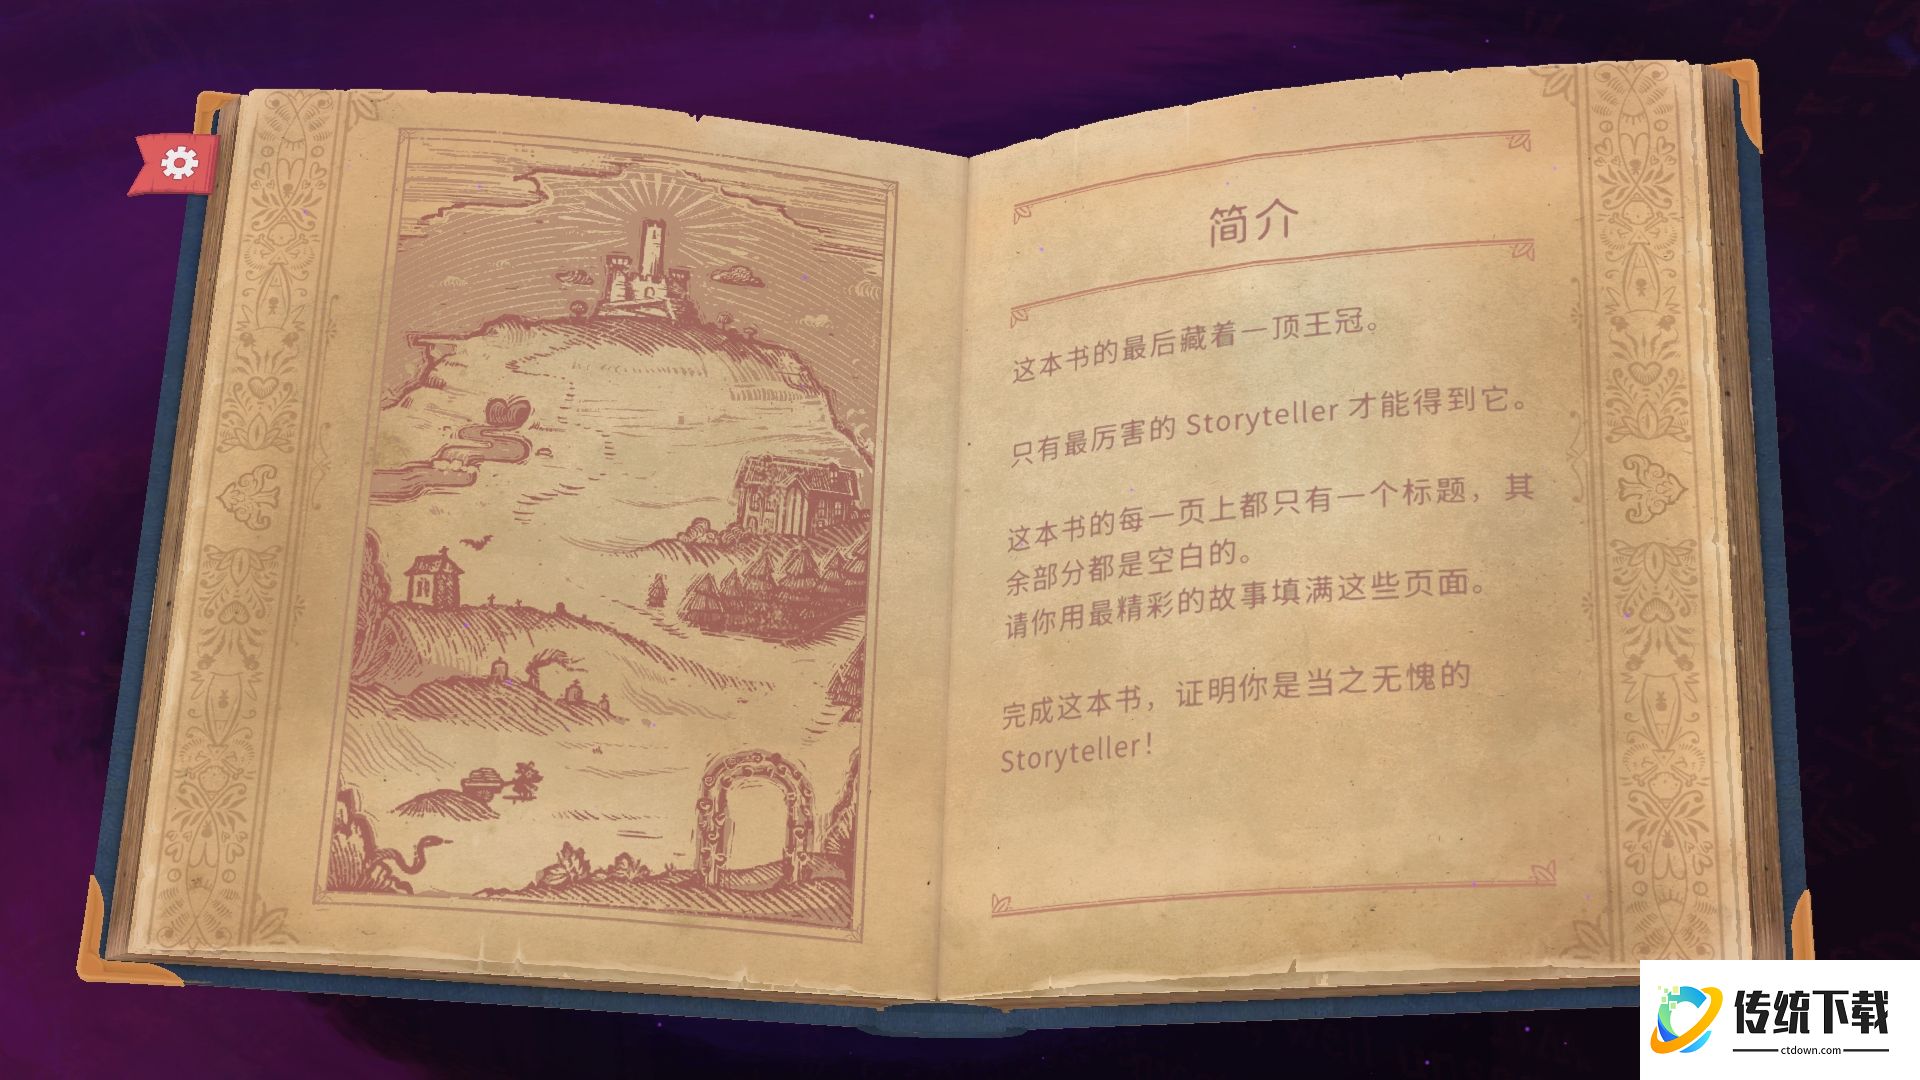 简介
这本书的最后藏着一顶王冠。
只有最厉害的 Storyteller 才能得到它。
这本书的每一页上都只有一个标题，其
余部分都是空白的。
请你用最精彩的故事填满这些页面。
完成这本书，证明你是当之无愧的
Storyteller！
传统下载
ctdown.com